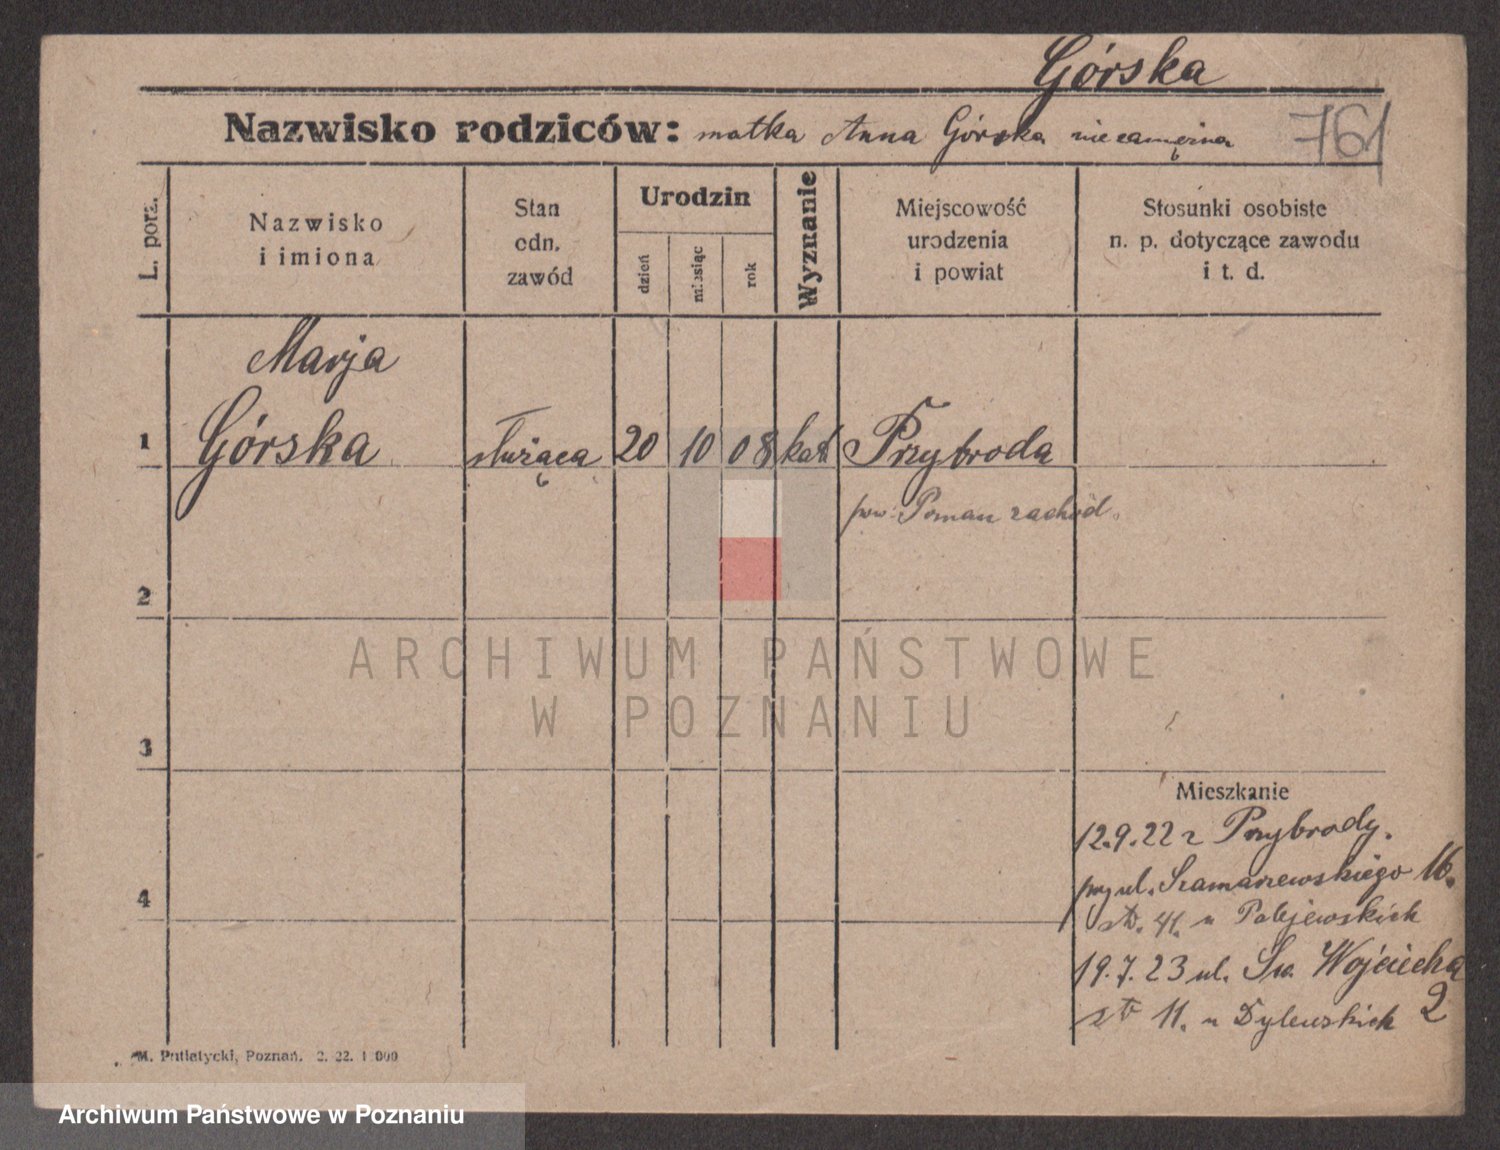 Górska
Nazwisko rodziców: matka Anna Górska niezamężna
761
L. porz.
Nazwisko
i imiona
Stan
odn.
zawód
Urodzin
dzień
miesiąc
rok
Wyznanie
Miejscowość
urodzenia
i powiat
Stosunki osobiste
n. p. dotyczące zawodu
i t. d.
Marja
1 Górska służąca 20 10 08 kat Przybroda
pow. Poznań zachód.
2
3
4
Mieszkanie
12.9.22 z Przybrody.
przy ul. Szamarzewskiego 16.
str. 41. u
19.7.23 ul. Św. Wojciecha
str 11. u Dylewskich 2
M. Putiatycki, Poznań. 2. 22. 1 000
ARCHIWUM PAŃSTWOWE
W POZNANIU
Archiwum Państwowe w Poznaniu